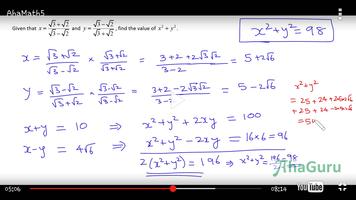 AhaMath5
Given that x = (√3 + √2)/(√3 − √2) and y = (√3 − √2)/(√3 + √2), find the value of x² + y².
x²+y² = 98
x = (√3+√2)/(√3−√2) × (√3+√2)/(√3+√2) = (3+2+2√3√2)/(3−2) = 5+2√6
y = (√3−√2)/(√3+√2) × (√3−√2)/(√3−√2) = (3+2−2√3√2)/(3− = 5−2√6
x²+y²
= 25+24+
+25+24
x+y = 10 ⇒ x²+y²+2xy = 100
x−y = 4√6 ⇒ x²+y²−2xy = 16×6 = 96
2(x²+y²) = 196 ⇒ x²+y² = 196 = 98
AhaGuru
05:06
08:14
YouTube